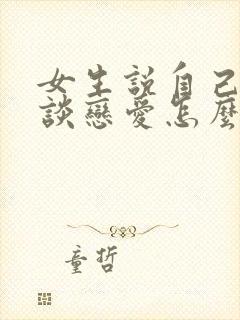 女生說自己
談戀愛怎麼
童哲